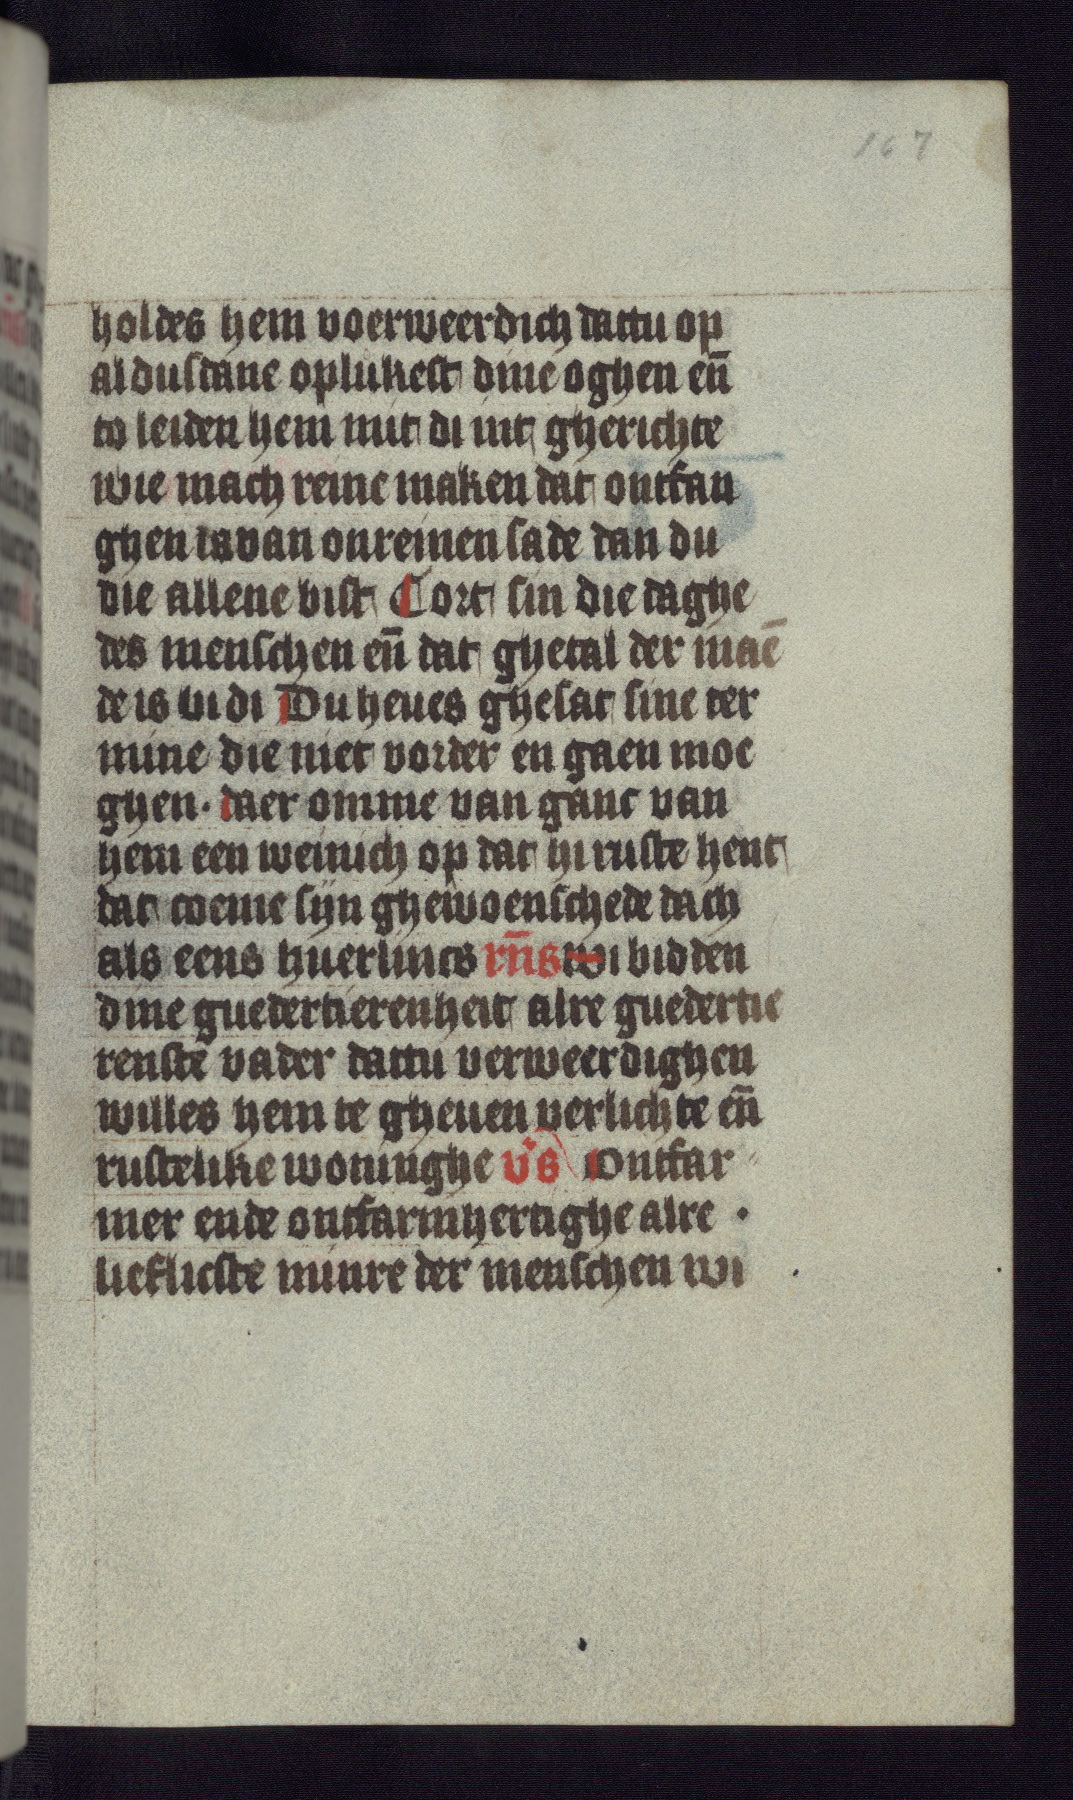 167
holdes hem voerweerdich dattu op
aldusdane oplukest dine oghen en̄
to leiden hem mit di int gherichte
wie mach reine maken dat ontfan
ghen is van onreinen sade dan du
die allene bist Cort sin die daghe
des menschen en̄ dat ghetal der maē
de is bi di Du heues ghesat sine ter
mine die niet vorder en gaen moe
ghen· daer omme van ganc van
hem een weinich op dat hi ruste hent
dat coeme sijn ghewoenschede dach
als eens huerlincs rn̄s wi bidden
dine guedertierenheit alre guedertie
renste vader dattu verweerdighen
willes hem te gheuen verlichte en̄
rustelike woninghe v̄s Ontfar
mer ende ontfarmhertighe alre
lieflicste minre der menschen wi